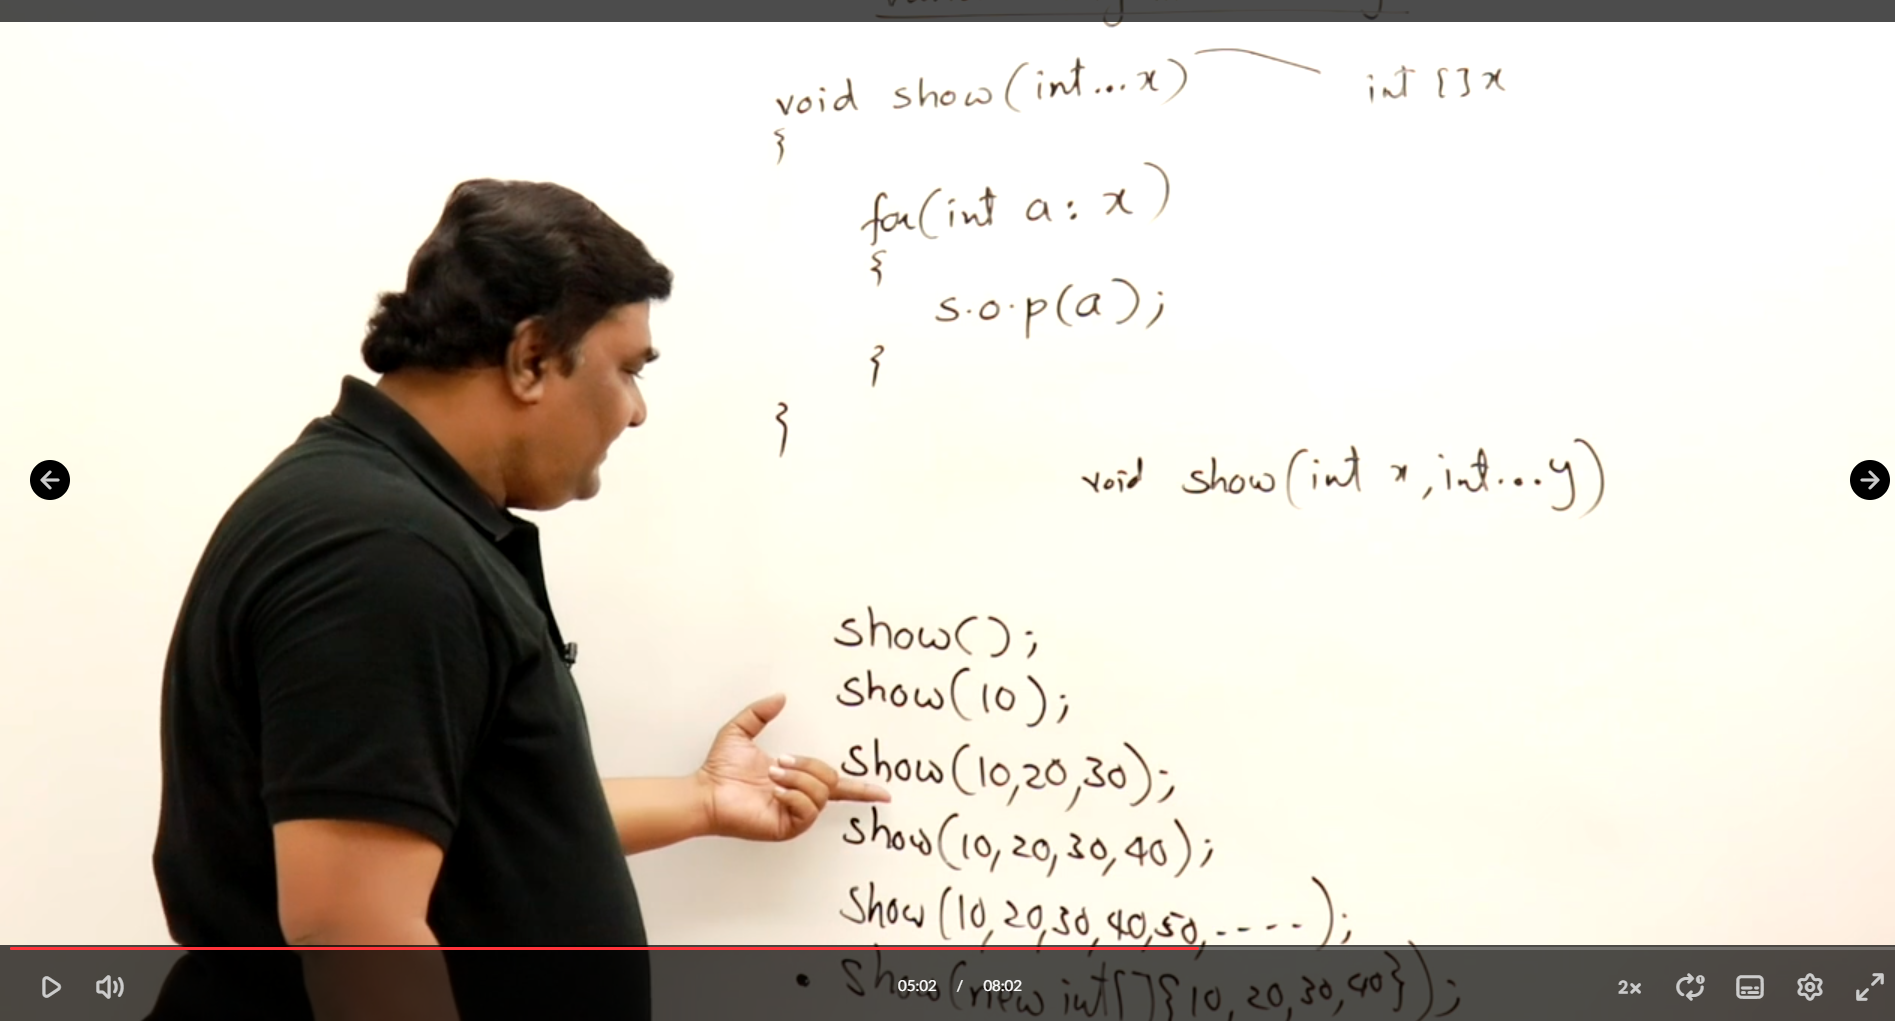 void show(int...x) int []x
{
for(int a: x)
{
s.o.p(a);
}
}
void show(int x, int...y)
show();
show(10);
show(10,20,30);
show(10,20,30,40);
show(10,20,30,40,50,----);
• show(new int[]{10,20,30,40});
05:02 / 08:02
2x